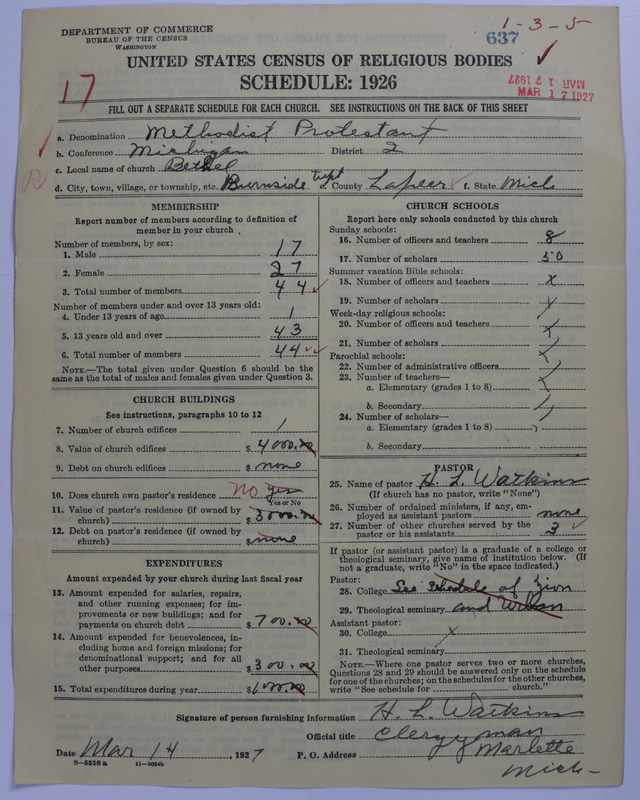 DEPARTMENT OF COMMERCE
BUREAU OF THE CENSUS
WASHINGTON
1-3-5
637
UNITED STATES CENSUS OF RELIGIOUS BODIES
SCHEDULE: 1926
17
MAR 17 1927
MAR 17 1927
FILL OUT A SEPARATE SCHEDULE FOR EACH CHURCH. SEE INSTRUCTIONS ON THE BACK OF THIS SHEET
a. Denomination Methodist Protestant
b. Conference Michigan District 2
c. Local name of church Bethel
d. City, town, village, or township, etc. Burnside twpt e. County Lapeer f. State Mich
R
MEMBERSHIP
Report number of members according to definition of
member in your church
Number of members, by sex:
1. Male 17
2. Female 27
3. Total number of members 44
Number of members under and over 13 years old:
4. Under 13 years of age 1
5. 13 years old and over 43
6. Total number of members 44
NOTE.—The total given under Question 6 should be the
same as the total of males and females given under Question 3.
CHURCH BUILDINGS
See instructions, paragraphs 10 to 12
7. Number of church edifices 1
8. Value of church edifices $ 4000.00
9. Debt on church edifices $ none
10. Does church own pastor's residence No yes
Yes or No
11. Value of pastor's residence (if owned by
church) $ 3000.00
12. Debt on pastor's residence (if owned by
church) $ none
EXPENDITURES
Amount expended by your church during last fiscal year
13. Amount expended for salaries, repairs,
and other running expenses; for im-
provements or new buildings; and for
payments on church debt $ 700.00
14. Amount expended for benevolences, in-
cluding home and foreign missions; for
denominational support; and for all
other purposes $ 300.00
15. Total expenditures during year $ 1000.00
CHURCH SCHOOLS
Report here only schools conducted by this church
Sunday schools:
16. Number of officers and teachers 8
17. Number of scholars 50
Summer vacation Bible schools:
18. Number of officers and teachers x
19. Number of scholars x
Week-day religious schools:
20. Number of officers and teachers x
21. Number of scholars x
Parochial schools:
22. Number of administrative officers
23. Number of teachers—
a. Elementary (grades 1 to 8)
b. Secondary
24. Number of scholars—
a. Elementary (grades 1 to 8)
b. Secondary
PASTOR
25. Name of pastor H. L. Watkins
(If church has no pastor, write "None")
26. Number of ordained ministers, if any, em-
ployed as assistant pastors none
27. Number of other churches served by the
pastor or his assistants 3
If pastor (or assistant pastor) is a graduate of a college or
theological seminary, give name of institution below. (If
not a graduate, write "No" in the space indicated.)
Pastor:
28. College See schedule of Zion
29. Theological seminary and
Assistant pastor:
30. College x
31. Theological seminary
NOTE.—Where one pastor serves two or more churches,
Questions 28 and 29 should be answered only on the schedule
for one of the churches; on the schedules for the other churches,
write "See schedule for church."
Signature of person furnishing information H. L. Watkins
Official title Clergyman
Date Mar 14 1927 P. O. Address Marlette
Mich-
8—5516 a 11—9024b